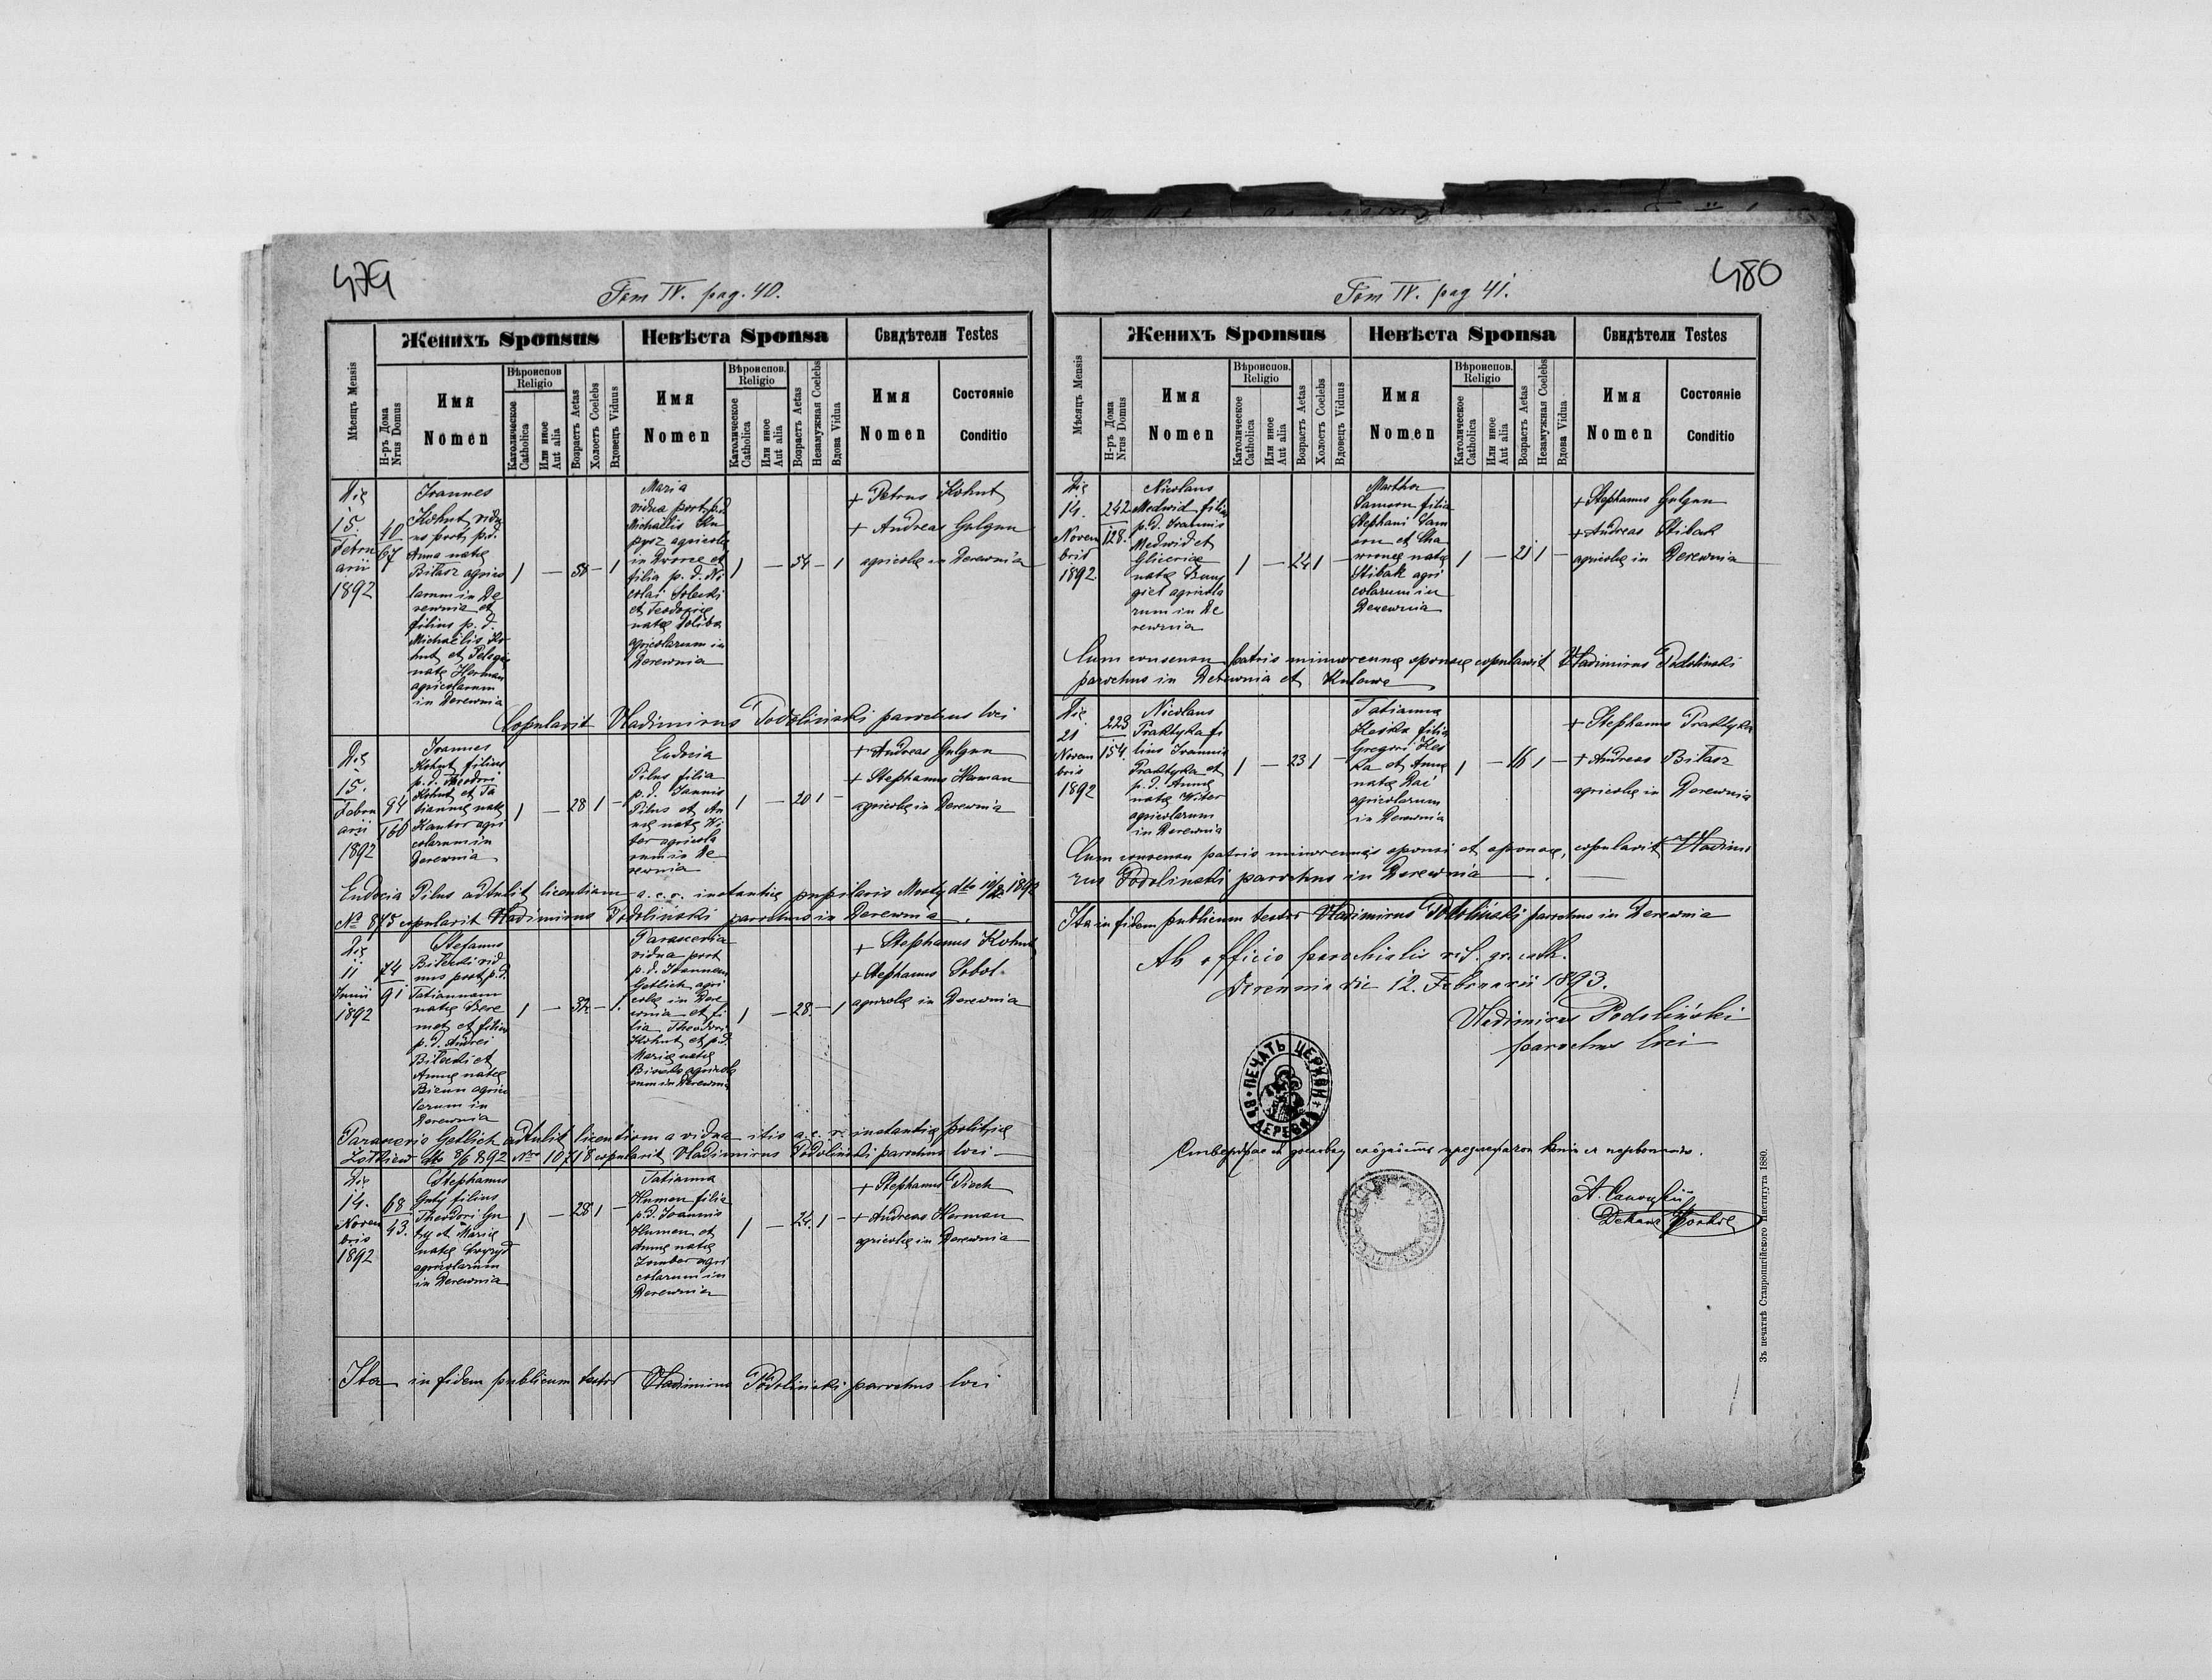 479
Tom IV. pag. 40.
Женихъ Sponsus
Невѣста Sponsa
Свидѣтели Testes
Мѣсяцъ Mensis
Н-ръ Дома Nrus Domus
Имя Nomen
Вѣроиспов. Religio
Католическое Catholica
Или иное Aut alia
Возрастъ Aetas
Холостъ Coelebs
Вдовецъ Viduus
Имя Nomen
Вѣроиспов. Religio
Католическое Catholica
Или иное Aut alia
Возрастъ Aetas
Незамужная Coelebs
Вдова Vidua
Имя Nomen
Состояніе Conditio
Die
15.
Februarii
1892
40
67
Ioannes
Kohut vidu
us post p.d.
Anna natę
Bitasz agrico
larum in De
rewnia et
filius p. d.
Michaëlis Ko
hut et Pelagię
natę Herman
agricolarum
in Derewnia
1 — — 1
Maria
vidua post p.d.
Michaëlis
agricolę
in Dvorce et
filia p. d. Ni
colai Solecki
et Teodorię
natę
agricolarum in
Derewnia
1 — 54 — 1
+ Petrus Kohut
+ Andreas Gulgun
agricolę in Derewnia
Copulavit Vladimirus Podoliński parochus loci
Die
15.
Februarii
1892
94
160
Ioannes
Kohut filius
p.d. Theodori
Kohut et Ta
tiannę natę
Kantor agri
colarum in
Derewnia
1 — 28 1 —
Eudocia
Pilus filia
p. d. Ioannis
Pilus et An
nę natę Wi
ter agricola
rum in De
rewnia
1 — 20 1 —
+ Andreas Gulgun
+ Stephanus Herman
agricolę in Derewnia
Eudocia Pilus adtulit licentiam a. c. r. instantię pupilaris Mosty dto 1892
No 875 copulavit Vladimirus Podoliński parochus in Derewnia.
Die
11
Junii
1892
74
91
Stefanus
Bilecki vid
uus post p.d.
Tatiannam
natę Bere
met et filius
p. d. Andrei
Bilecki et
Annę natę
Bieun agrico
larum in
Derewnia
1 — 32 — 1.
Parascevia
vidua post
p.d. Ioannem
Getlich agri
colę in Dere
wnia et fi
lia Theodori
Kohut et p.d.
Marię natę
agricola
rum in Derewnia
1 — 28 — 1
+ Stephanus Kohut
+ Stephanus Sobol
agricolę in Derewnia
Parascevia Getlich adtulit licentiam a viduitatis a. c. r. instantię politicę
Żołkiew dto 8/6 892 Nro 10718 copulavit Vladimirus Podoliński parochus loci
Die
14.
Novembris
1892
68
43.
Stephanus
Guty filius
Theodori Gu
ty et Marię
natę
agricolarum
in Derewnia
1 — 28 1 —
Tatianna
Humen filia
p.d. Ioannis
Humen et
Annę natę
Zombor agri
colarum in
Derewnia
1 — 24. 1 —
+ Stephanus Piech
+ Andreas Herman
agricolę in Derewnia
Ita in fidem publicum testor Vladimirus Podoliński parochus loci
480
Tom IV. pag 41.
Женихъ Sponsus
Невѣста Sponsa
Свидѣтели Testes
Мѣсяцъ Mensis
Н-ръ Дома Nrus Domus
Имя Nomen
Вѣроиспов. Religio
Католическое Catholica
Или иное Aut alia
Возрастъ Aetas
Холостъ Coelebs
Вдовецъ Viduus
Имя Nomen
Вѣроиспов. Religio
Католическое Catholica
Или иное Aut alia
Возрастъ Aetas
Незамужная Coelebs
Вдова Vidua
Имя Nomen
Состояніе Conditio
Die
14.
Novem
bris
1892
242
128.
Nicolaus
Medwid filius
p.d. Ioannis
Medwid et
Glicerię
natę
agricola
rum in De
rewnia
1 — 24 1 —
Martha
Samson filia
Stephani Sam
son et Cha
ronę natę
Stibak agri
colarum in
Derewnia
1 — 21 1 —
+ Stephanus Gulgun
+ Andreas Stibak
agricolę in Derewnia
Cum consensu patris minorennę sponsę copulavit Vladimirus Podoliński
parochus in Derewnia et Kulawa
Die
21
Novem
bris
1892
223
154.
Nicolaus
Praktyka fi
lius Ioannis
Praktyka et
p. d. Annę
natę Witer
agricolarum
in Derewnia
1 — 23 1 —
Tatianna
Heska filia
Gregori Hes
ka et Annę
natę Dai
agricolarum
in Derewnia
1 — 16 1 —
+ Stephanus Praktyka
+ Andreas Bitasz
agricolę in Derewnia
Cum consensu patris minorennęs sponsi et sponsę, copulavit Vladimi
rus Podoliński parochus in Derewnia.
Ita in fidem publicum testor Vladimirus Podoliński parochus in Derewnia
Ab officio parochialis rit. gr. cath.
Derewnia die 12. Februarii 1893.
Vladimirus Podoliński
parochus loci
ПЕЧАТЬ ЦЕРКВИ
Зъ печатнѣ Ставропигійского Института 1880.